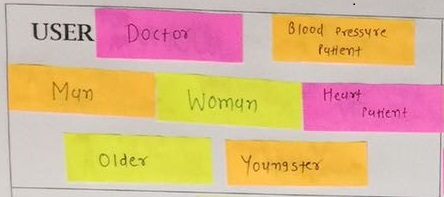 USER
Doctor
Blood Pressure
Patient
Man
Woman
Heart
Patient
Older
Youngster